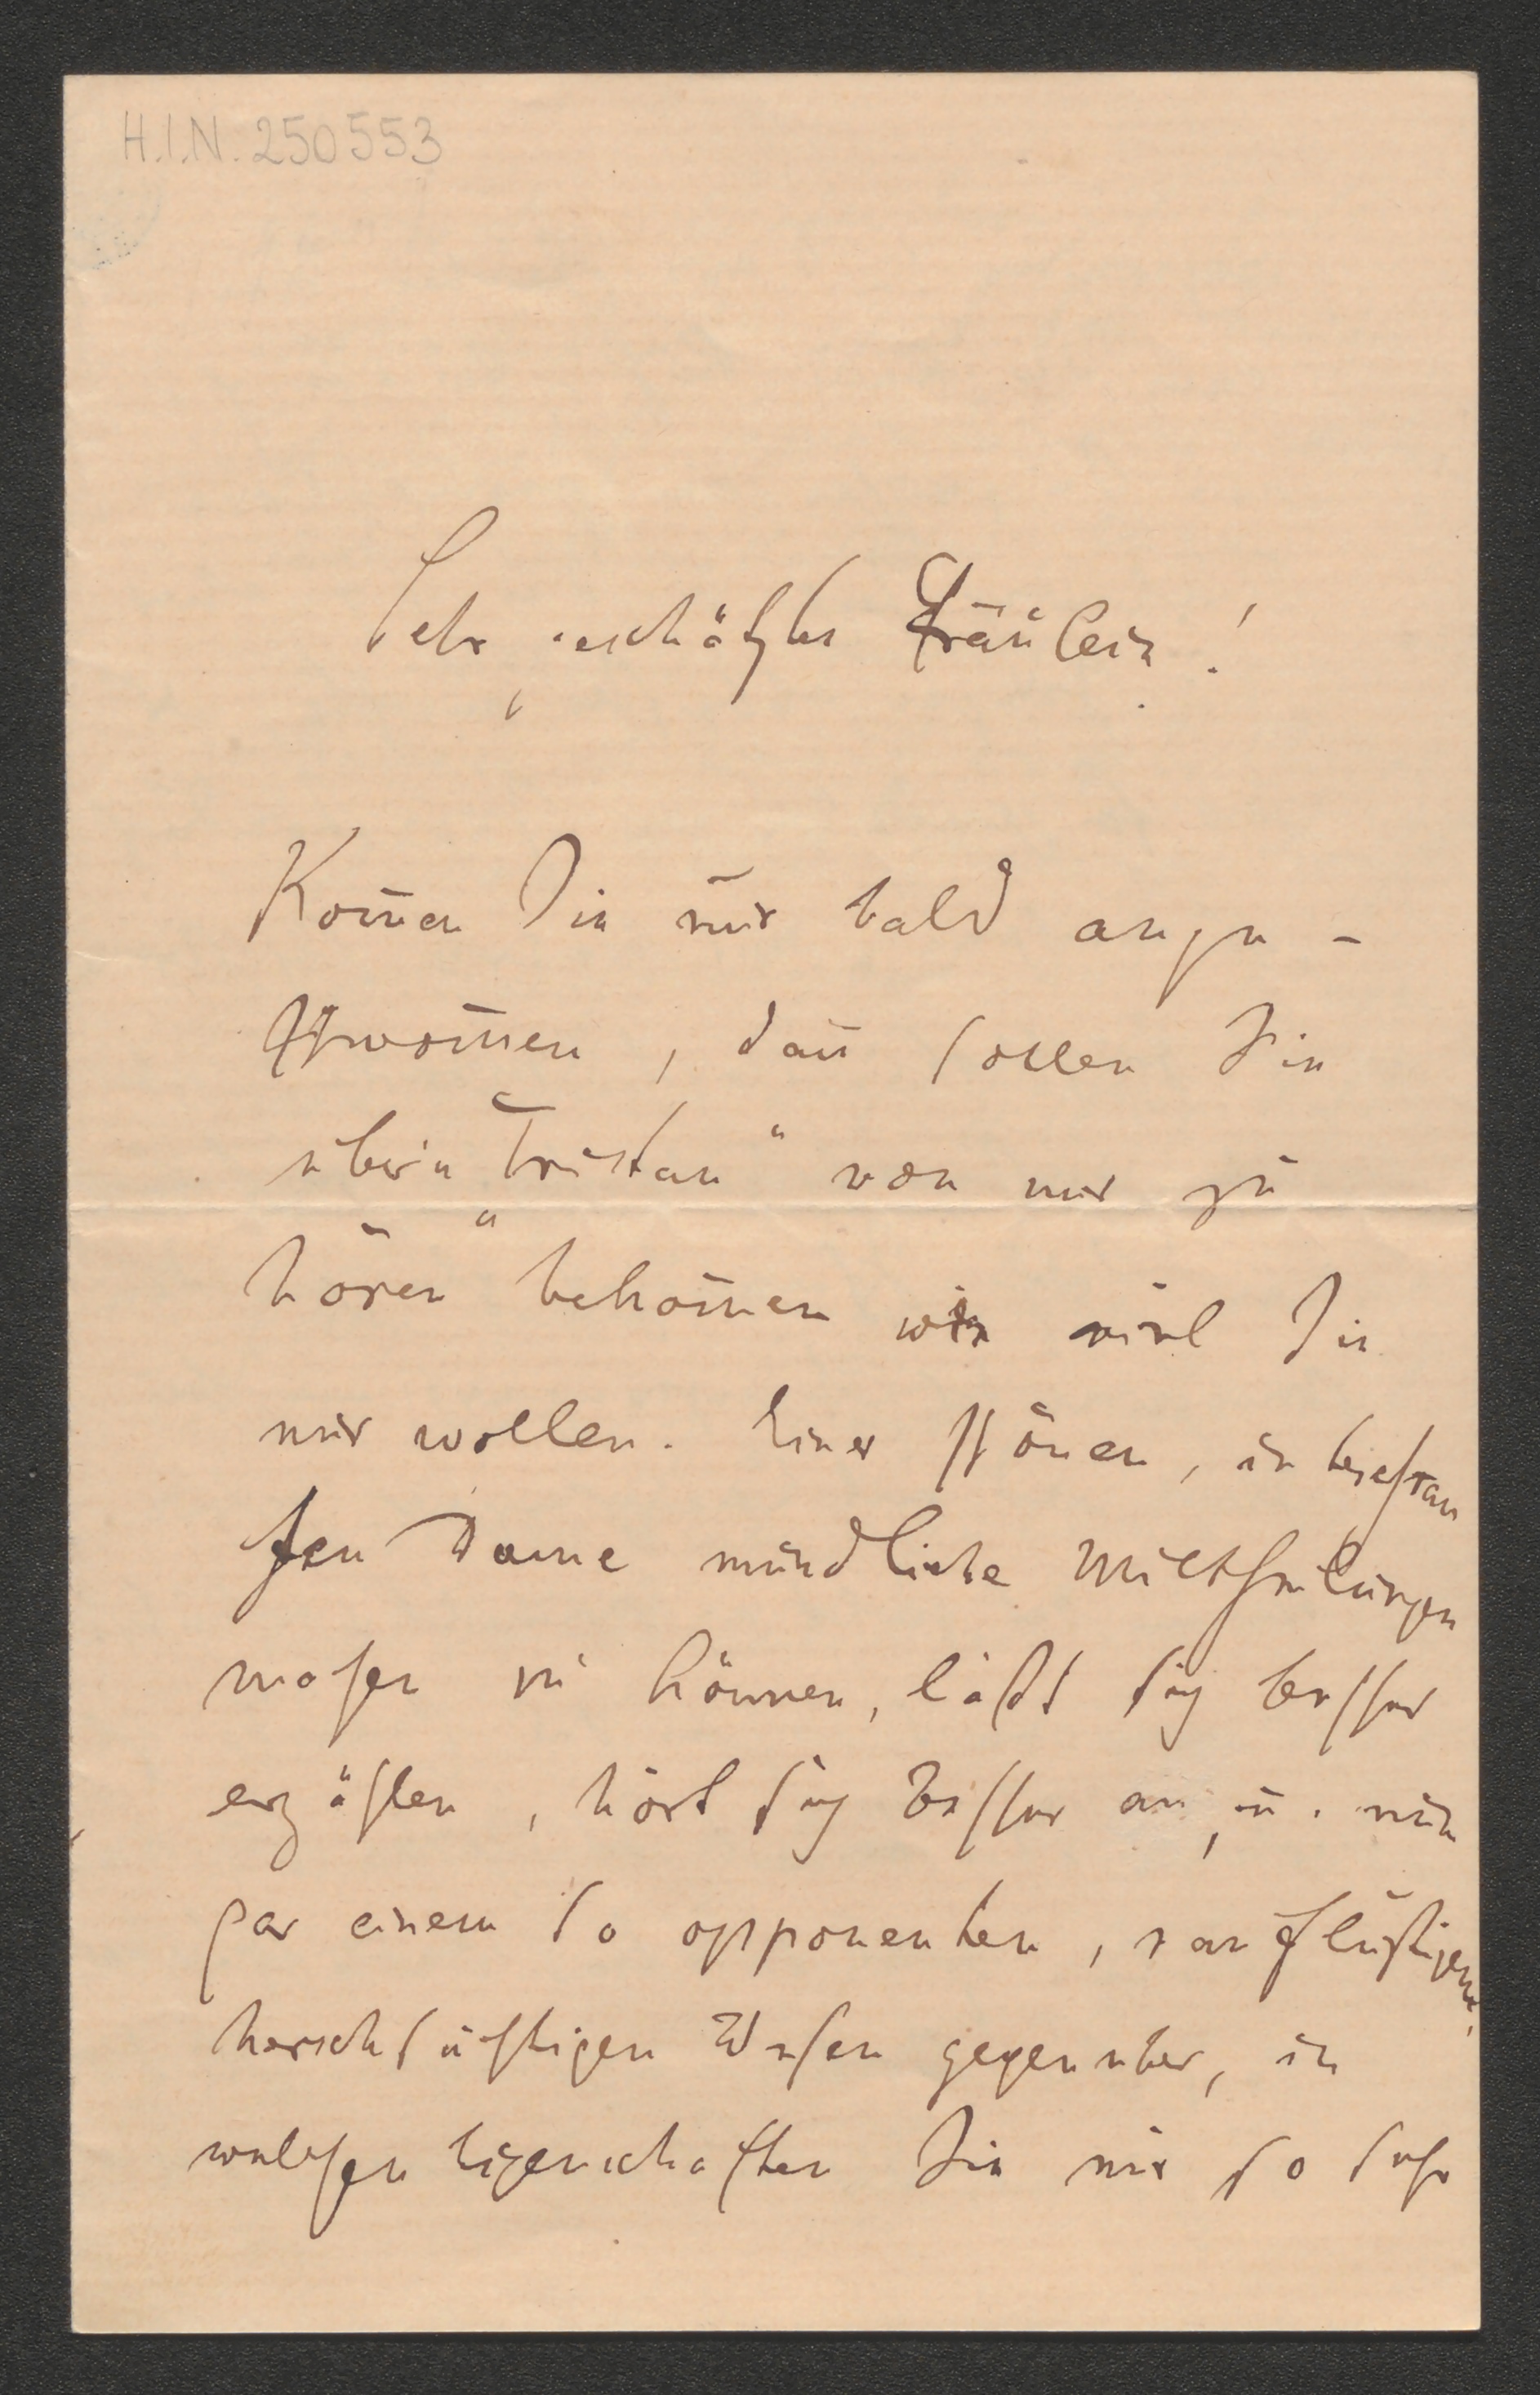 H.I.N. 250553
Sehr geschätztes Fräulein!
Kom̄en Sie nur bald ange-
schwom̄en, dan̄ sollen Sie
über'n „Tristan“ von mir zu
hören bekom̄en wie viel Sie
nur wollen. Einer schönen,
Dame mündliche Mittheilungen
machen zu können, läßt sich besser
erzählen, hört sich besser an, u. nun
gar einem so opponenten, rauflustigen,
herschsüchtigen Wesen gegenüber, in
welchen Eigenschaften Sie mir so sehr